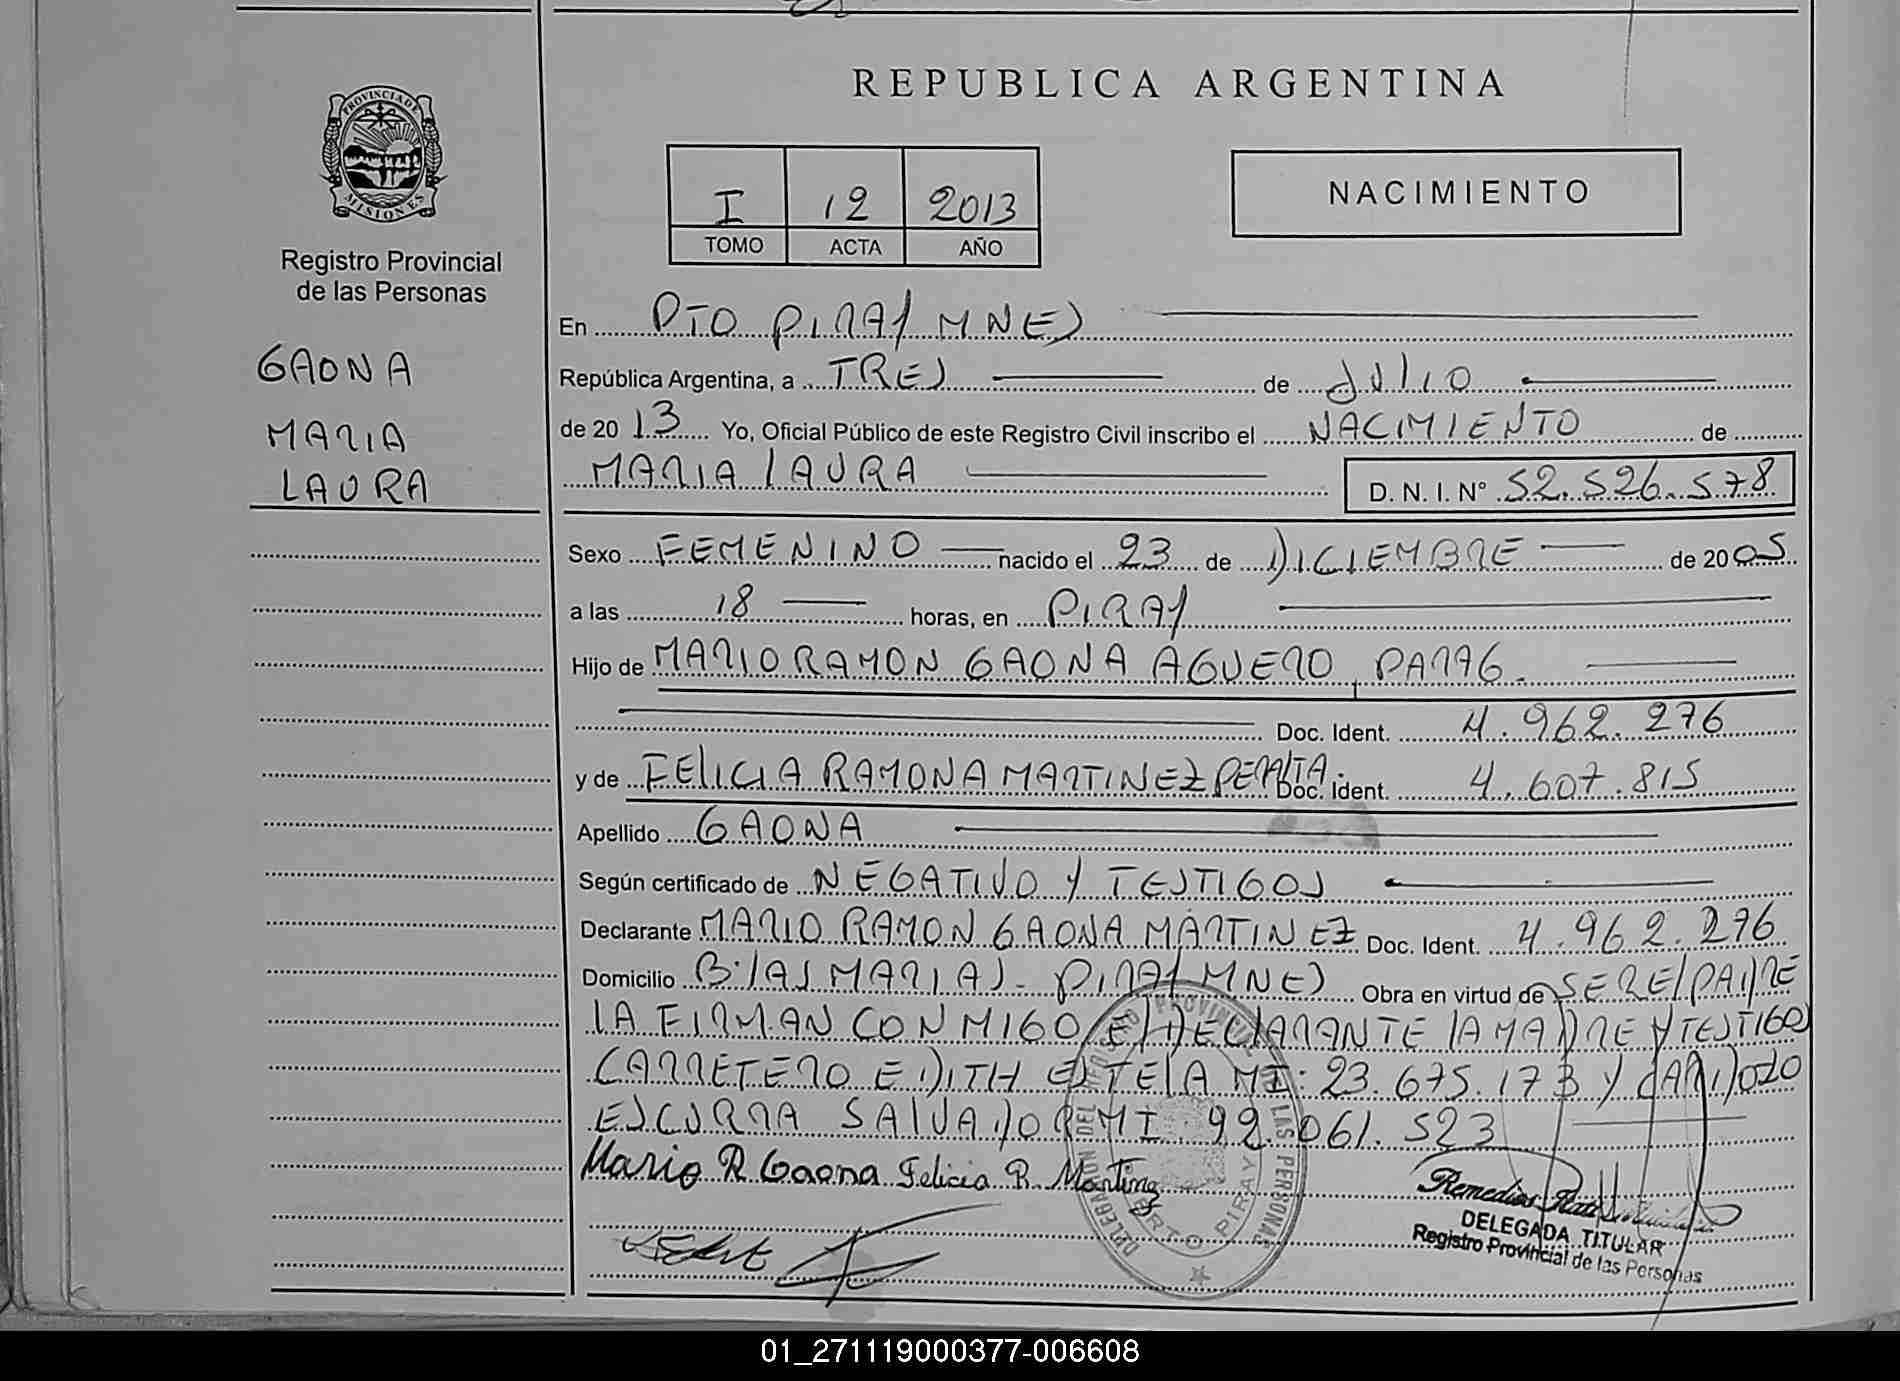 PROVINCIA DE
MISIONES
Registro Provincial
de las Personas
GAONA
MARIA
LAURA
REPUBLICA ARGENTINA
I 12 2013
TOMO ACTA AÑO
NACIMIENTO
En PTO PIRAY MNES
República Argentina, a TRES de JULIO
de 2013 Yo, Oficial Público de este Registro Civil inscribo el NACIMIENTO de
MARIA LAURA D. N. I. Nº 52.526.578
Sexo FEMENINO nacido el 23 de DICIEMBRE de 2005
a las 18 horas, en PIRAY
Hijo de MARIO RAMON GAONA AGUERO, PARAG.
Doc. Ident. 4.962.276
y de FELICIA RAMONA MARTINEZ PERALTA. Doc. Ident. 4.607.815
Apellido GAONA
Según certificado de NEGATIVO Y TESTIGOS
Declarante MARIO RAMON GAONA MARTINEZ Doc. Ident. 4.962.276
Domicilio Bº LAS MARIAS - PIRAY MNES Obra en virtud de SER EL PADRE
LA FIRMAN CONMIGO EL DECLARANTE LA MADRE Y TESTIGOS
CARRETERO EDITH ESTELA MI: 23.675.173 Y CARDOZO
ESCURRA SALVADOR MI 92.061.523
Mario R Gaona Felicia R Martinez
DELEGACION DEL REGISTRO PROVINCIAL DE LAS PERSONAS
PTO PIRAY
Remedios
DELEGADA TITULAR
Registro Provincial de las Personas
01_271119000377-006608